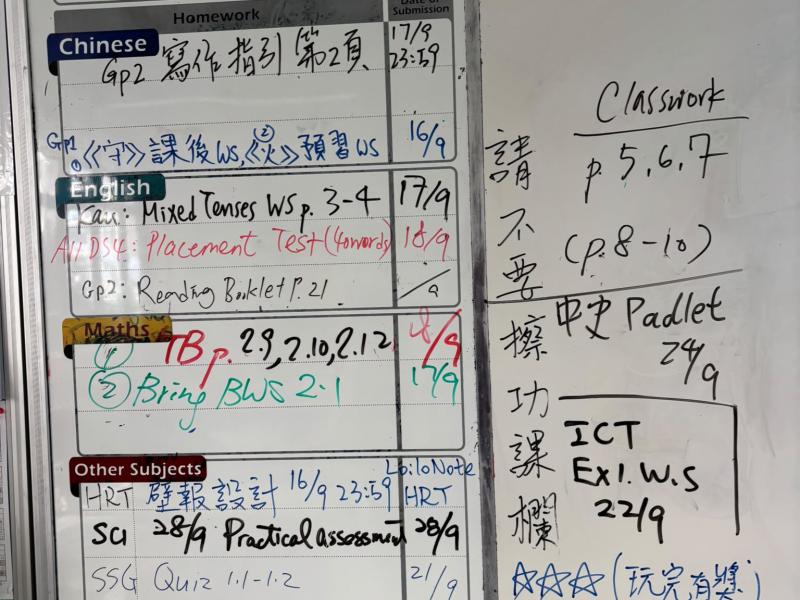 Homework
Date of Submission
Chinese
Gp2 寫作指引 第2頁 17/9 23:59
Grp1 ①《守》課後WS, ②《火》預習WS 16/9
English
Kau: Mixed Tenses WS p. 3-4 17/9
All DS4: Placement Test (40words) 18/9
Gp2: Reading Booklet P. 21 /9
Maths
① TB p. 2.9, 2.10, 2.12 18/9
② Bring BWS 2.1 17/9
Other Subjects
HRT 壁報設計 16/9 23:59 LoiloNote HRT
Sci 28/9 Practical assessment 28/9
SSG Quiz 1.1-1.2 21/9
請不要擦功課欄
Classwork
p. 5, 6, 7
(p. 8-10)
中史 Padlet
24/9
ICT
Ex1. W.S
22/9
☆☆☆ (玩完有獎)